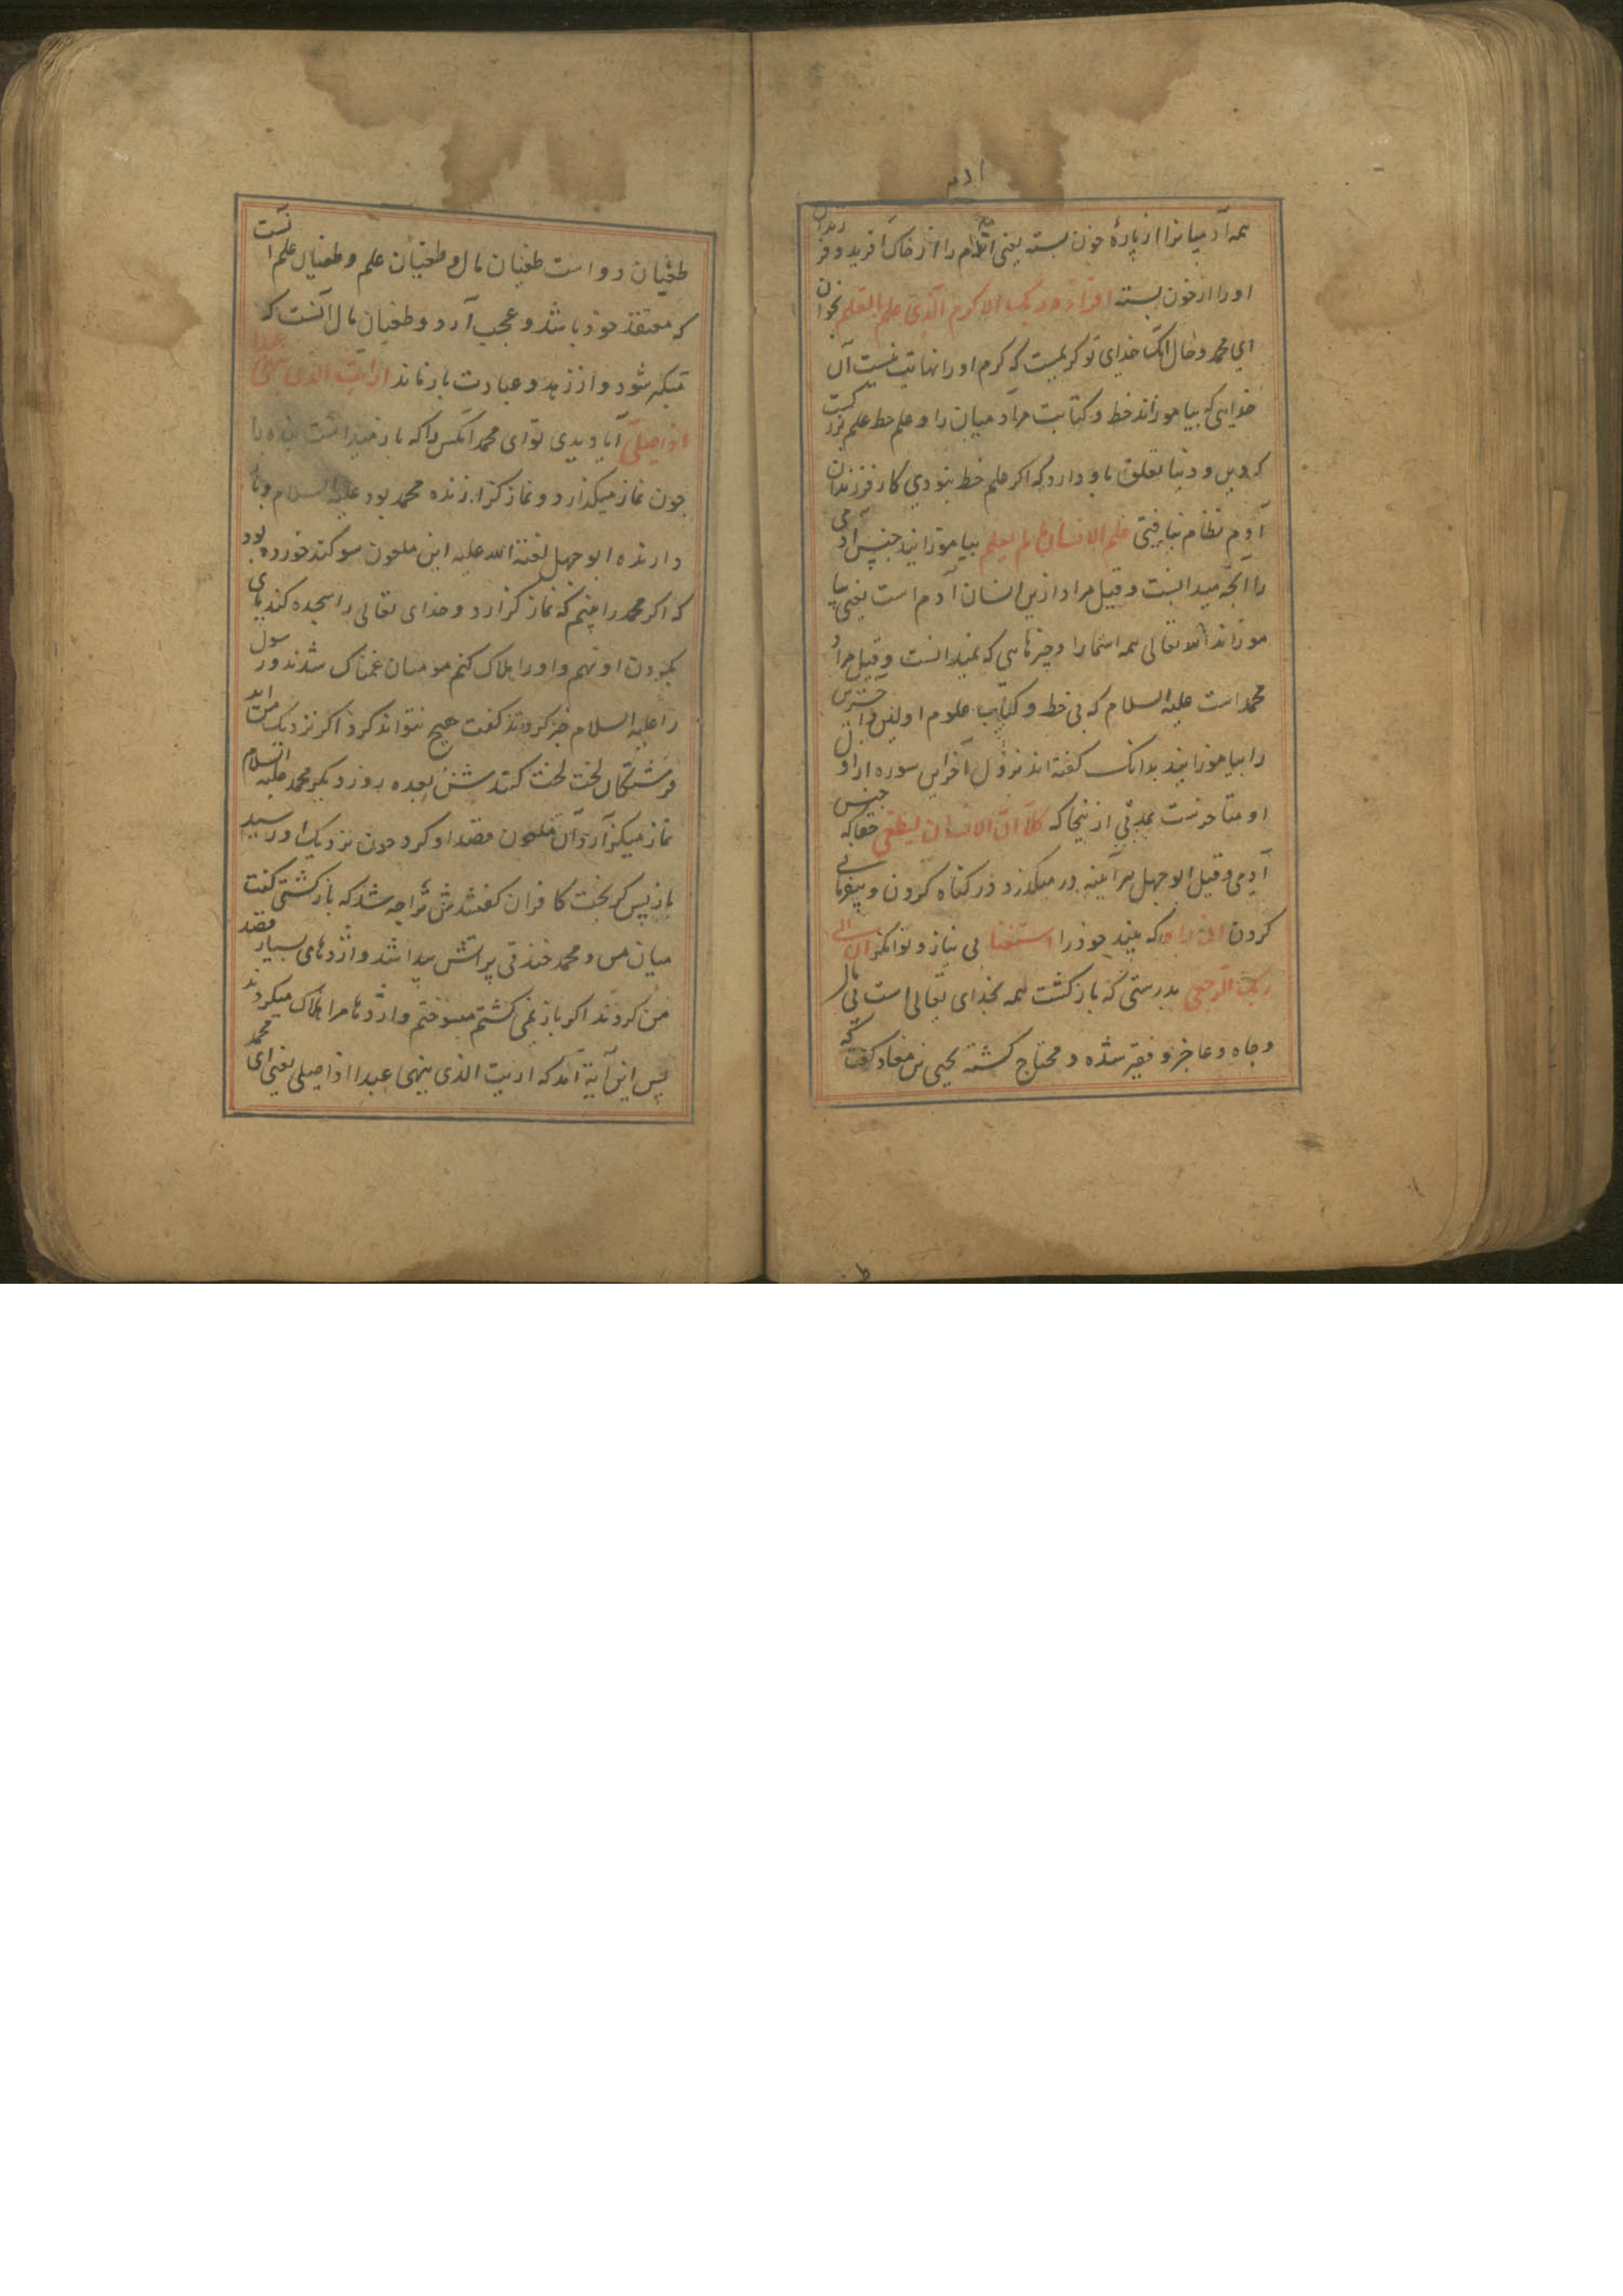 همه آدمیانرا از پارهٔ خون بسته یعنی آدم را از خاک آفرید و فرزندان
او را از خون بسته اقرأ و ربک الاکرم الذی علم بالقلم بخوان
ای محمد و حال آنک خدای تو کریمیست که کرم او را نهایت نیست آن
خدایی که بیاموزاند خط و کتابت مر آدمیان را و علم خط علم بزرگیست
که دین و دنیا تعلق باو دارد که اگر علم خط نبودی کار فرزندان
آدم نظام نیافتی علم الانسان ما لم یعلم بیاموزانید جنس آدمی
را آنچه میدانست و قیل مراد ازین انسان آدم است یعنی بیا
موزاند الله تعالی همه اسما را و چیزهایی که نمیدانست و قیل مراد
محمد است علیه السلام که بی خط و کتاب علوم اولین و آخرین
را بیاموزانید بدانک گفته اند نزول آخر این سوره از اول
او متأخرست بمدتی از نیجا که کلا ان الانسان لیطغی حقا که جنس
آدمی و قیل ابو جهل هر آینه در میگذرد در گناه کردن و بیفرمانی
کردن ان راه که بیند خود را استغنا بی نیاز و توانگر ان الی
ربک الرجعی بدرستی که بازگشت همه بخدای تعالی است بی مال
و جاه و عاجز و فقیر شده و محتاج گشته یحیی بن معاد گفت که
طغیان دو است طغیان مال و طغیان علم و طغیان علم آنست
که معتقد خود باشد و عجب آرد و طغیان مال آنست که
متکبر شود و از زهد و عبادت باز ماند ارایت الذی ینهی عبدا
اذا صلی آیا دیدی تو ای محمد آنکس را که باز میداشت بنده را
چون نماز میگذارد و نماز گزارنده محمد بود علیه السلام و باز
دارنده ابو جهل لعنة الله علیه این ملعون سوگند خورده بود
که اگر محمد را بینم که نماز گزارد و خدای تعالی را سجده کند پای
بگردن او نهم و او را هلاک کنم مومنان غمناک شدند رسول
را علیه السلام خبر کردند گفت هیچ نتواند کرد اگر نزدیک من آید
فرشتگان لخت لخت کنندش بعده روز دیگر محمد علیه السلام
نماز میگزارد آن ملعون قصد او کرد چون نزدیک او رسید
باز پس گریخت کافران گفتندش ترا چه شد که باز گشتی گفت
میان من و محمد خندقی پر آتش پیدا شد و اژدهای بسیار قصد
من کردند اگر باز نمی گشتم میسوختم و اژدها مرا هلاک میکردند
پس این آیة آمد که ارایت الذی ینهی عبدا اذا صلی یعنی ای محمد